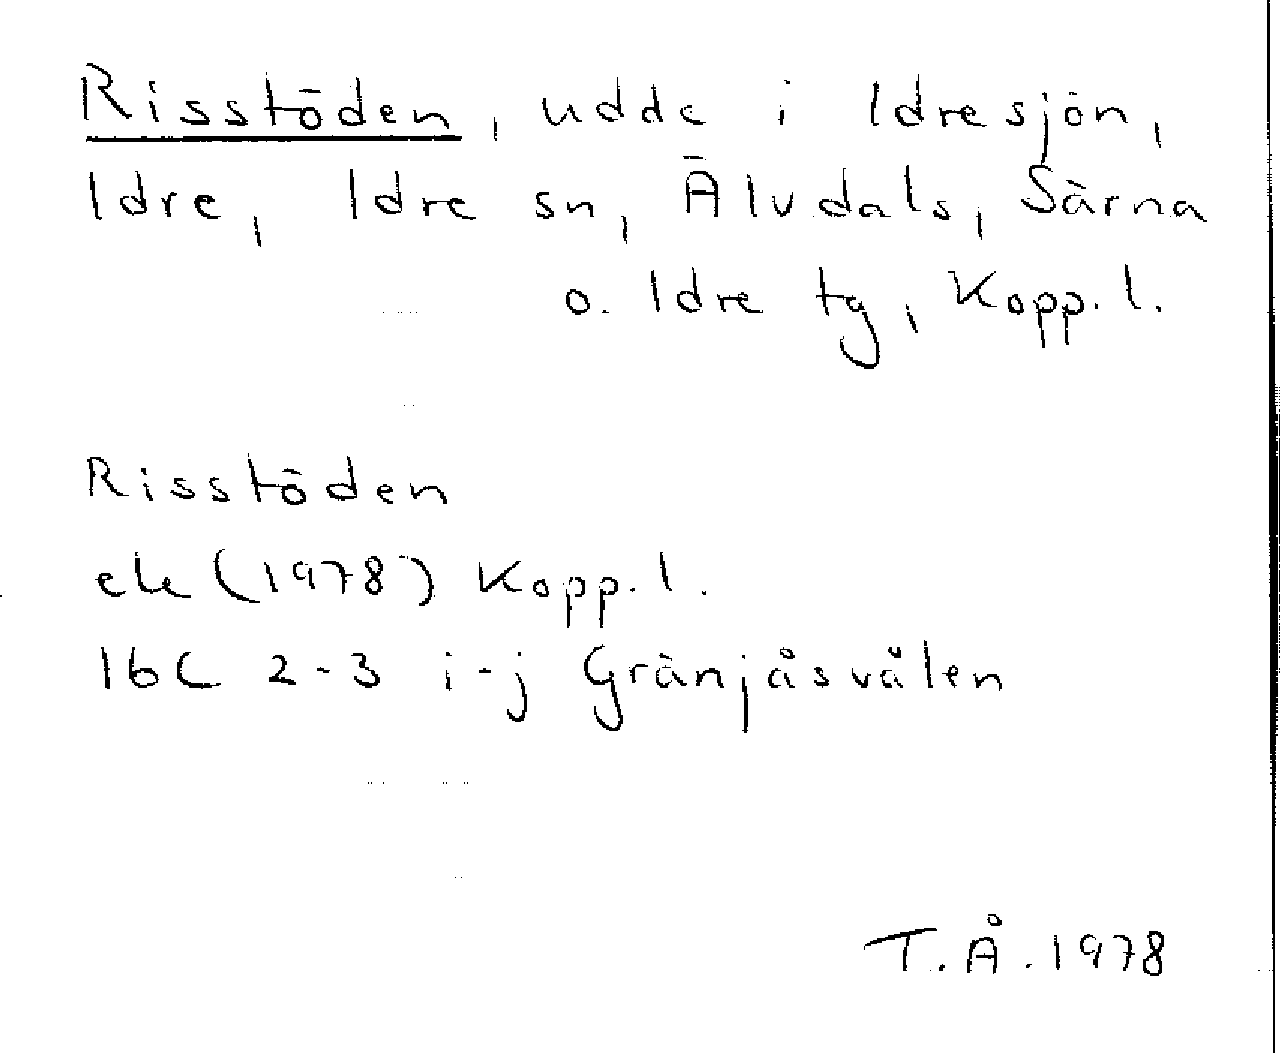 Risstöden, udde i Idresjön,
Idre, Idre sn, Älvdals, Särna
o. Idre tg, Kopp. l.
Risstöden
ek (1978) Kopp. l.
16C 2-3 i-j Gränjåsvålen
T.Å. 1978